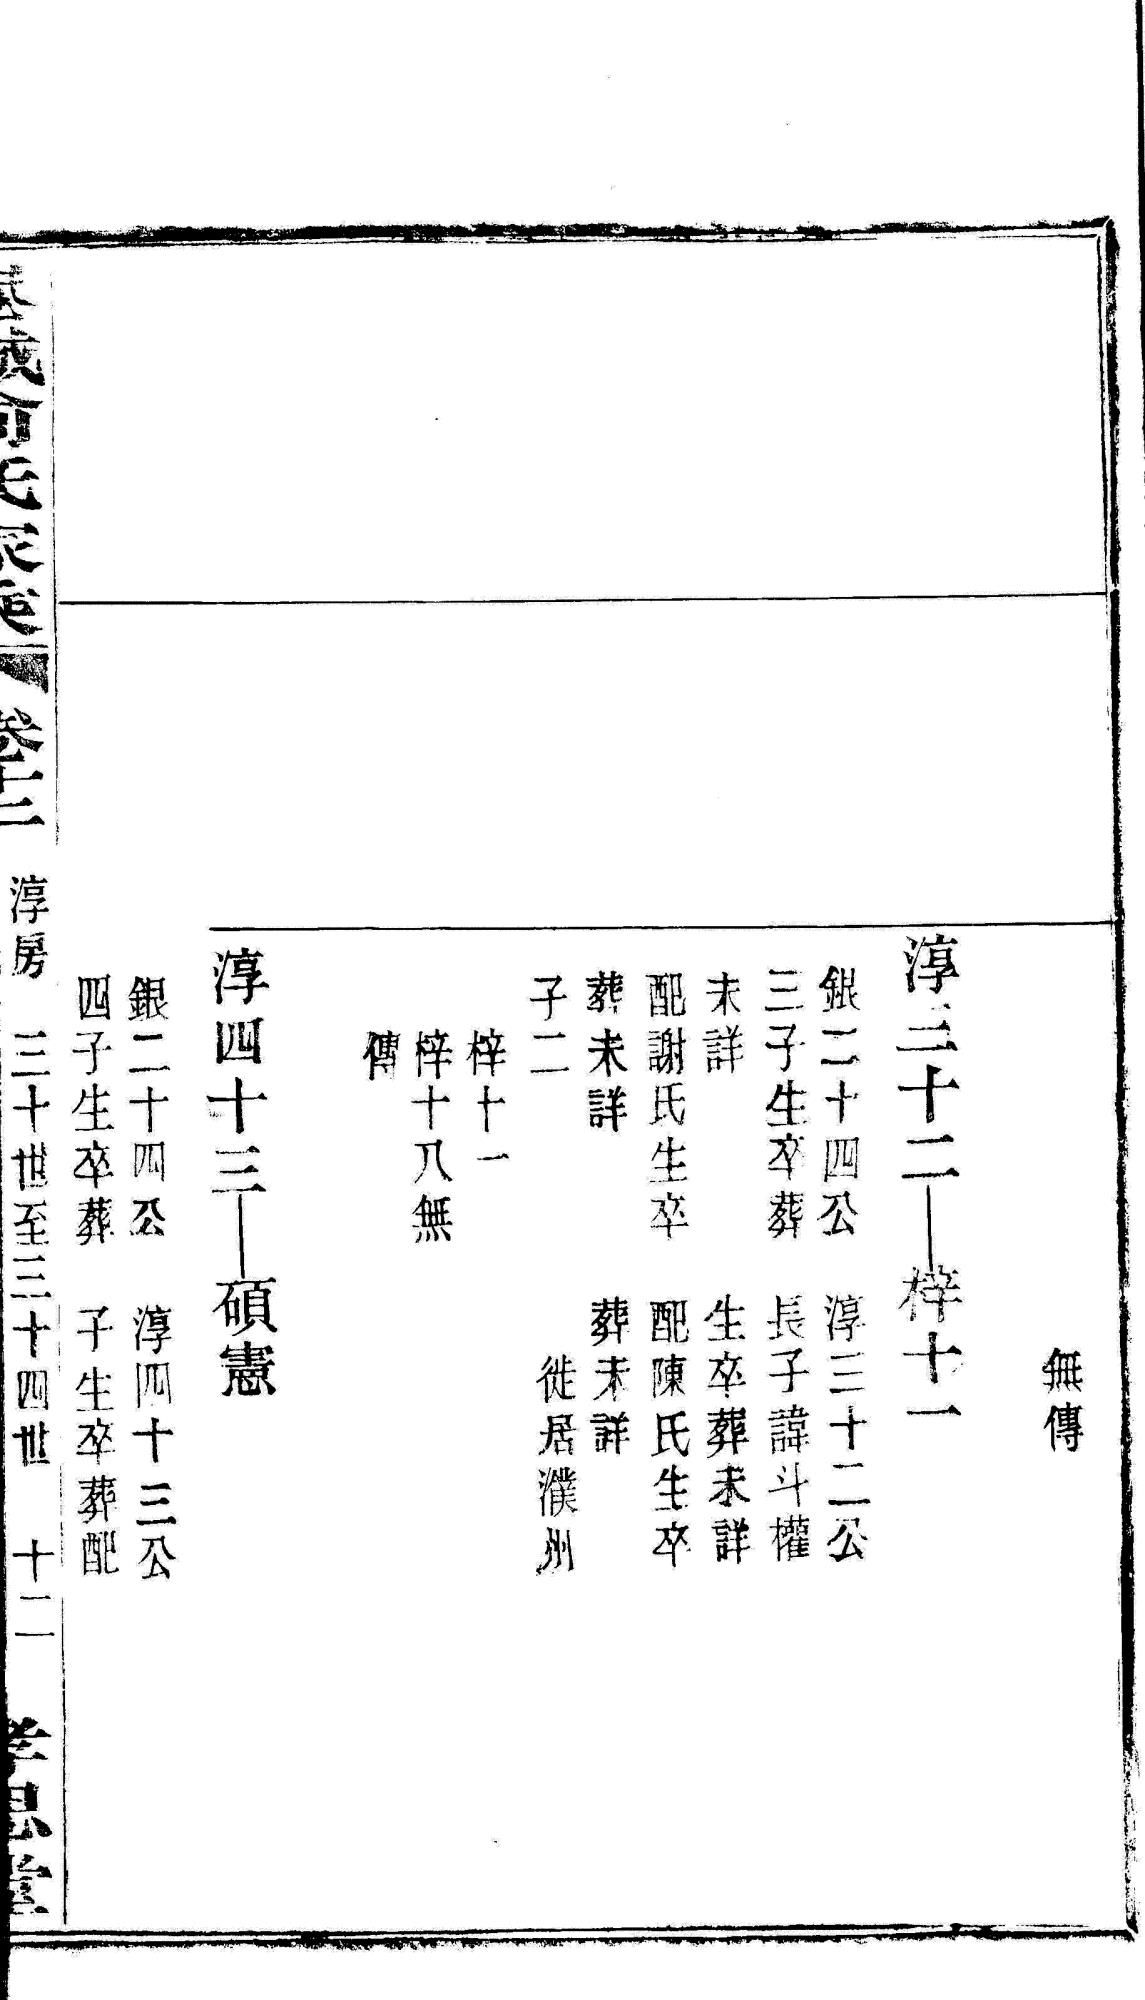 無傳
淳三十二—梓十一
銀二十四公 淳三十二公
三子生卒葬 長子諱斗權
未詳 生卒葬未詳
配謝氏生卒 配陳氏生卒
葬未詳 葬未詳
子二 徙居濮州
梓十一
梓十八無
傳
淳四十三—碩憲
銀二十四公 淳四十三公
四子生卒葬 子生卒葬配
俞氏家 卷十二 淳房 三十世至三十四世 十二 孝思堂